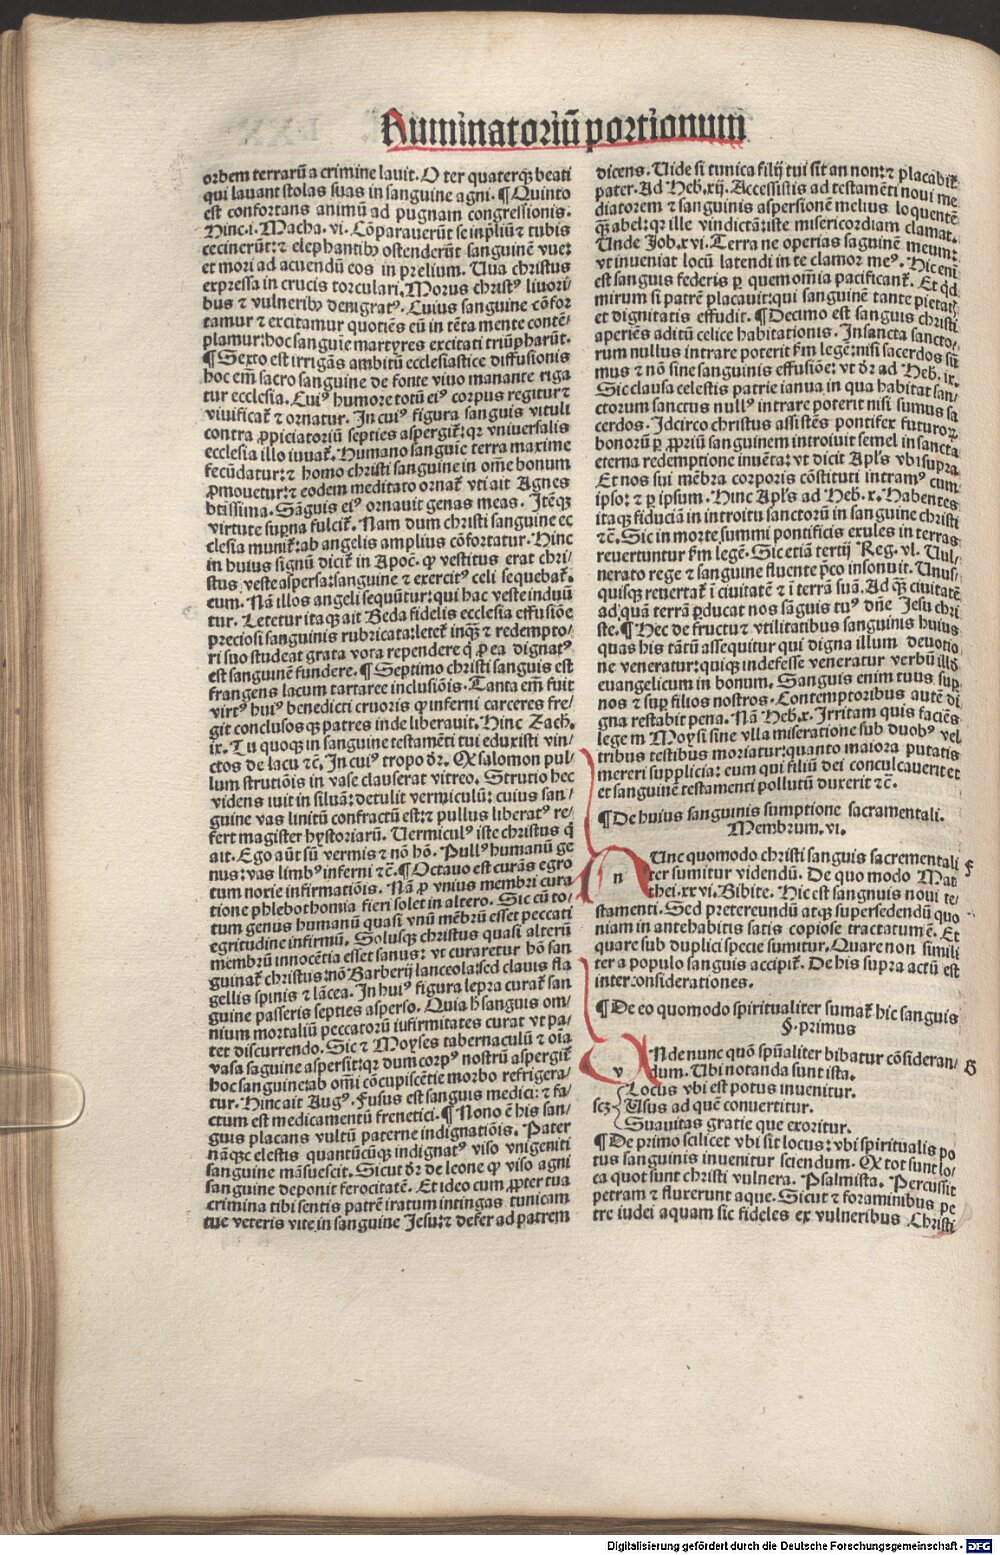 Ruminatoriū portionum
orbem terrarū a crimine lauit. O ter quaterqȝ beati
qui lauant stolas suas in sanguine agni. ¶ Quinto
est confortans animū ad pugnam congressionis.
Hinc .i. Macha. vi. Cōparauerūt se in p̄liū ⁊ tubis
cecinerūt: ⁊ elephantibꝰ ostenderūt sanguinē vue:
et mori ad acuendū eos in prelium. Uua christus
expressa in crucis torculari. Morus christꝰ liuori/
bus ⁊ vulneribꝰ denigratꝰ. Cuius sanguine cōfor
tamur ⁊ excitamur quotiēs eū in tēta mente contē/
plamur: hoc sanguīe martyres excitati triūpharūt.
¶ Sexto est irrigās ambitū ecclesiastice diffusionis
hoc em̄ sacro sanguine de fonte viuo manante riga
tur ecclesia. Cuiꝰ humore totū eiꝰ corpus regitur ⁊
viuificat̄ ⁊ ornatur. In cuiꝰ figura sanguis vituli
contra ꝓpiciatoriū septies aspergit̄: qꝛ vniuersalis
ecclesia illo iuuat̄. Humano sanguīe terra maxime
fecūdatur: ⁊ homo christi sanguine in om̄e bonum
ꝓmouetur: ⁊ eodem meditato ornat̄ vti ait Agnes
btīssima. Sāguis eiꝰ ornauit genas meas. Itēqȝ
virtute suꝑna fulcit̄. Nam dum christi sanguine ec
clesia munit̄: ab angelis amplius cōfortatur. Hinc
in huius signū dicit̄ in Apoc̄. ꝙ vestitus erat chri/
stus veste aspersa: sanguine ⁊ exercitꝰ celi sequebat̄.
eum. Nā illos angeli sequūtur: qui hac veste induū
tur. Letetur itaqȝ ait Beda fidelis ecclesia effusiōe
preciosi sanguinis rubricata: letet̄ inqȝ ⁊ redempto/
ri suo studeat grata vota rependere q̄ ꝓ ea dignatꝰ
est sanguinē fundere. ¶ Septimo christi sanguis est
frangens lacum tartaree inclusiōis. Tanta em̄ fuit
virtꝰ huiꝰ benedicti cruoris ꝙ inferni carceres fre/
git conclusosqȝ patres inde liberauit. Hinc Zach.
ix. Tu quoqȝ in sanguine testamēti tui eduxisti vin/
ctos de lacu ⁊c̄. In cuiꝰ tropo dr̄. Qȝ salomon pul/
lum strutiōis in vase clauserat vitreo. Strutio hec
videns iuit in siluā: detulit vermiculū: cuius san/
guine vas linitū confractū est: ⁊ pullus liberatꝰ re/
fert magister hystoriarū. Uermiculꝰ iste christus q̄
ait. Ego aūt sū vermis ⁊ nō hō. Pullꝰ humanū ge
nus: vas limbꝰ inferni ⁊c̄. ¶ Octauo est curās egro
tum noxie infirmatiōis. Nā ꝓ vnius membri cura
tione phlebothomia fieri solet in altero. Sic cū to/
tum genus humanū quasi vnū mēbrū esset peccati
egritudine infirmū. Solusqȝ christus quasi alterū
membrū innocētia esset sanus: vt curaretur hō san
guinat̄ christus: nō Barberij lanceola: sed clauis fla
gellis spinis ⁊ lācea. In huiꝰ figura lepra curat̄ san
guine passeris septies asperso. Quia h̄ sanguis om/
nium mortaliū peccatorū iufirmitates curat vt pa/
tet discurrendo. Sic ⁊ Moyses tabernaculū ⁊ oīa
vasa saguine aspersit: qꝛ dum corpꝰ nostrū aspergit̄
hoc sanguine: ab om̄i cōcupiscētie morbo refrigera/
tur. Hinc ait Augꝰ. Fusus est sanguis medici: ⁊ fa/
ctum est medicamentū frenetici. ¶ Nono ē his san/
guis placans vultū paterne indignatiōis. Pater
nāqȝ celestis quantūcūqȝ indignatꝰ viso vnigeniti
sanguine māsuescit. Sicut dr̄ de leone ꝙ viso agni
sanguine deponit ferocitatē. Et ideo cum ꝓpter tua
crimina tibi sentis patrē iratum intingas tunicam
tue veteris vite in sanguine Jesu: ⁊ defer ad patrem
dicens. Uide si tunica filij tui sit an non: ⁊ placabit̄
pater. Ad Heb. xij. Accessistis ad testamēti noui me
diatorem ⁊ sanguinis aspersionē melius loquentē
qȝ abel: qꝛ ille vindictā: iste misericordiam clamat.
Unde Job. xvi. Terra ne operias saguinē meum:
vt inueniat locū latendi in te clamor meꝰ. Hic eni
est sanguis federis ꝑ quem om̄ia pacificant̄. Et qd̄
mirum si patrē placauit: qui sanguinē tante pietatis
et dignitatis effudit. ¶ Decimo est sanguis christi
aperiēs aditū celice habitationis. In sancta sancto/
rum nullus intrare poterit ẜm legē: nisi sacerdos sū
mus ⁊ nō sine sanguinis effusiōe: vt dr̄ ad Heb. ix.
Sic clausa celestis patrie ianua in qua habitat san/
ctorum sanctus nullꝰ intrare poterit nisi sumus sa
cerdos. Idcirco christus assistēs pontifex futuroꝝ
bonorū ꝑ ꝓpriū sanguinem introiuit semel in sancta
eterna redemptione inuēta: vt dicit Apl̄s vbi supra
Et nos sui mēbra corporis cōstituti intramꝰ cum
ipso: ⁊ ꝑ ipsum. Hinc Apl̄s ad Heb. x. Habentes
itaqȝ fiduciā in introitu sanctorū in sanguine christi
⁊c̄. Sic in morte summi pontificis exules in terras
reuertuntur ẜm legē. Sic etiā tertij Reg. vl. Uul/
nerato rege ⁊ sanguine fluente p̄co insonuit. Unus/
quisqȝ reuertat̄ ī ciuitatē ⁊ ī terrā suā. Ad qȝ ciuitatē
ad quā terrā ꝑducat nos saguis tuꝰ dn̄e Jesu chri
ste. ¶ Hec de fructu ⁊ vtilitatibus sanguinis huius
quas his tātū assequitur qui digna illum deuotio
ne veneratur: quiqȝ indefesse veneratur verbū illd̄
euangelicum in bonum. Sanguis enim tuus suꝑ
nos ⁊ suꝑ filios nostros. Contemptoribus autē di
gna restabit pena. Nā Heb. x. Irritam quis faciēs
legem Moysi sine vlla miseratione sub duobꝰ vel
tribus testibus moriatur: quanto maiora putatis
mereri supplicia: eum qui filiū dei conculcauerit et
et sanguinē testamenti pollutū duxerit ⁊c̄.
¶ De huius sanguinis sumptione sacramentali.
Membrum. vi.
n Unc quomodo christi sanguis sacrementali
ter sumitur videndū. De quo modo Mat
thei. xxvi. Bibite. Hic est sangnuis noui te/
stamenti. Sed pretereundū atqȝ supersedendū quo
niam in antehabitis satis copiose tractatum ē. Et
quare sub duplici specie sumitur. Quare non simili
ter a populo sanguis accipit̄. De his supra actū est
inter considerationes.
F
¶ De eo quomodo spiritualiter sumat̄ hic sanguis
§. primus
v Nde nunc quō spūaliter bibatur cōsideran/
dum. Ubi notanda sunt ista.
G
Locus vbi est potus inuenitur.
scȝ Usus ad quē conuertitur.
Suauitas gratie que exoritur.
¶ De primo scilicet vbi sit locus: vbi spiritualis po
tus sanguinis inuenitur sciendum. Qȝ tot sunt lo/
ca quot sunt christi vulnera. Psalmista. Percussit
petram ⁊ fluxerunt aque. Sicut ⁊ foraminibus pe
tre iudei aquam sic fideles ex vulneribus Christi
Digitalisierung gefördert durch die Deutsche Forschungsgemeinschaft - DFG